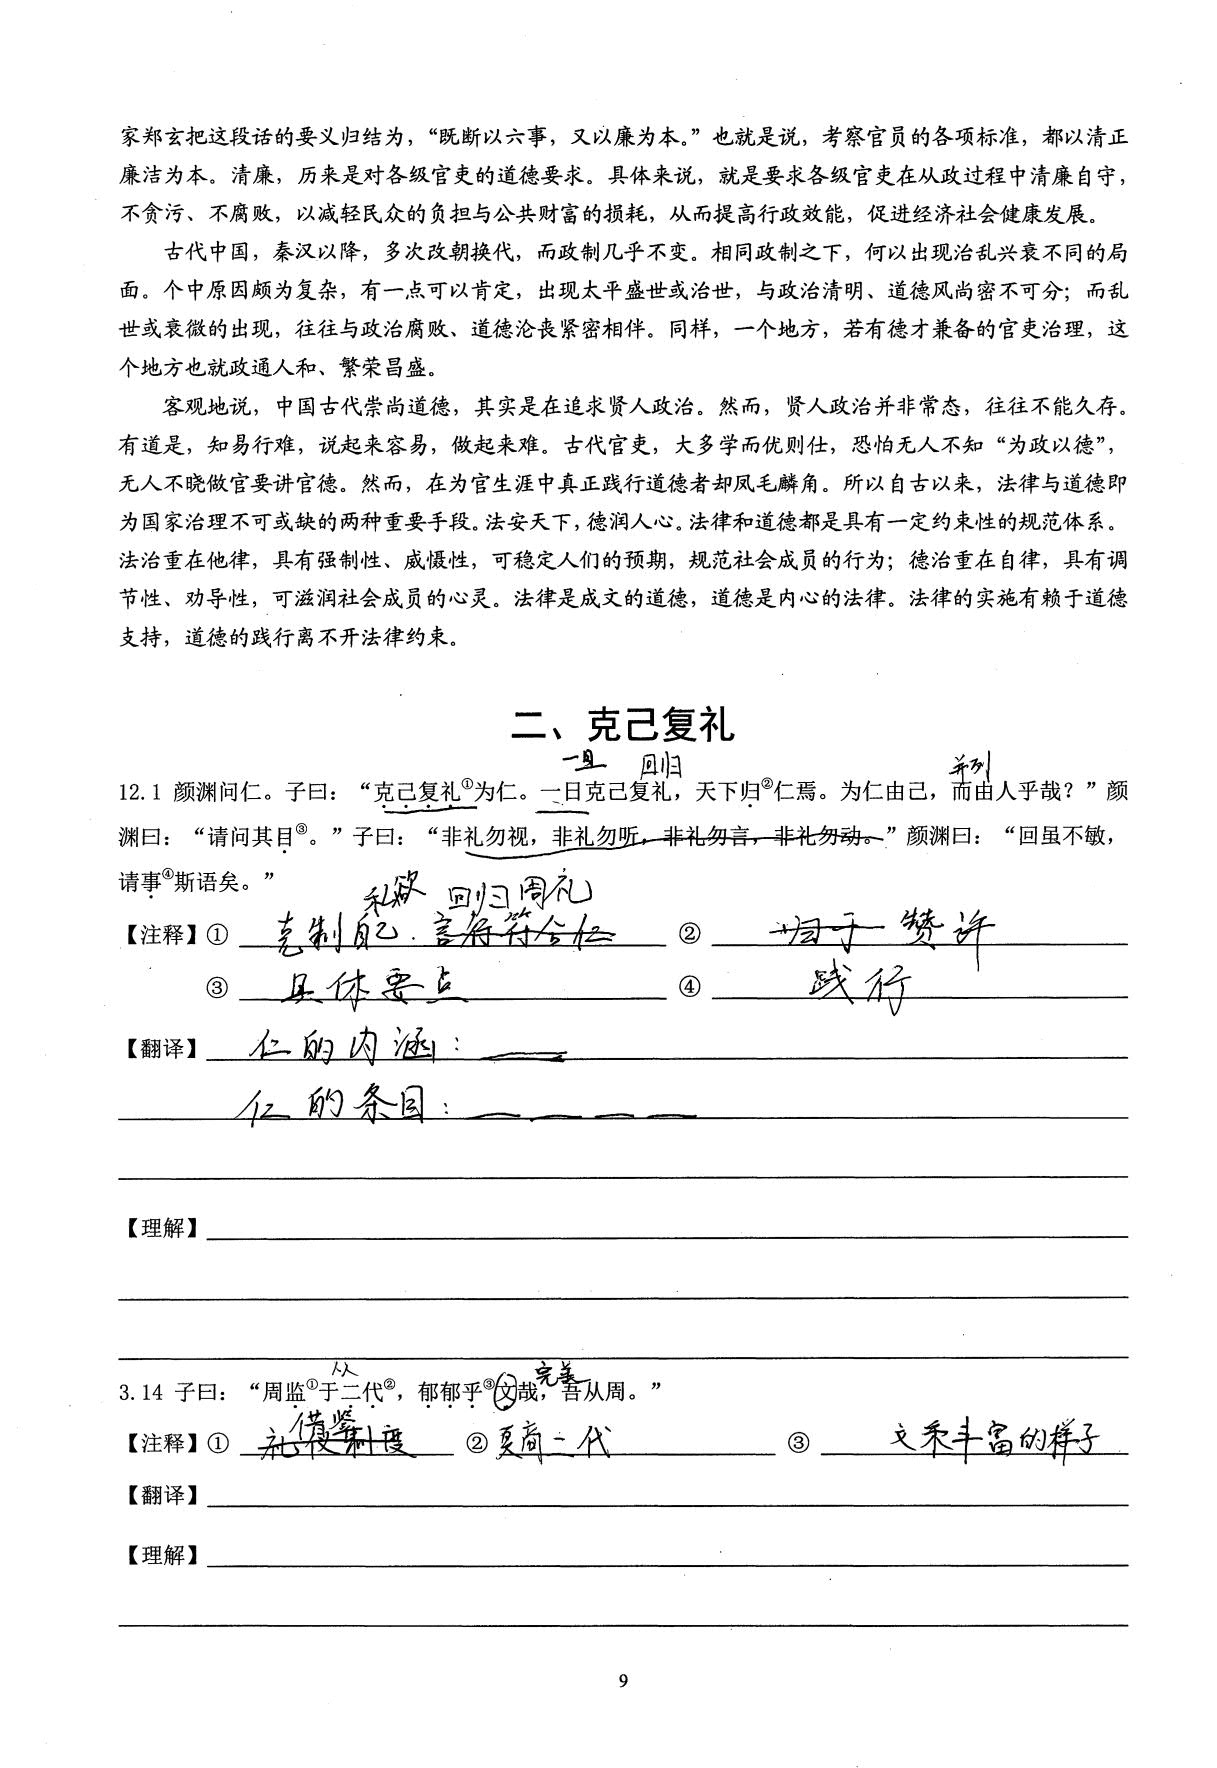 家郑玄把这段话的要义归结为，“既断以六事，又以廉为本。”也就是说，考察官员的各项标准，都以清正
廉洁为本。清廉，历来是对各级官吏的道德要求。具体来说，就是要求各级官吏在从政过程中清廉自守，
不贪污、不腐败，以减轻民众的负担与公共财富的损耗，从而提高行政效能，促进经济社会健康发展。
古代中国，秦汉以降，多次改朝换代，而政制几乎不变。相同政制之下，何以出现治乱兴衰不同的局
面。个中原因颇为复杂，有一点可以肯定，出现太平盛世或治世，与政治清明、道德风尚密不可分；而乱
世或衰微的出现，往往与政治腐败、道德沦丧紧密相伴。同样，一个地方，若有德才兼备的官吏治理，这
个地方也就政通人和、繁荣昌盛。
客观地说，中国古代崇尚道德，其实是在追求贤人政治。然而，贤人政治并非常态，往往不能久存。
有道是，知易行难，说起来容易，做起来难。古代官吏，大多学而优则仕，恐怕无人不知“为政以德”，
无人不晓做官要讲官德。然而，在为官生涯中真正践行道德者却凤毛麟角。所以自古以来，法律与道德即
为国家治理不可或缺的两种重要手段。法安天下，德润人心。法律和道德都是具有一定约束性的规范体系。
法治重在他律，具有强制性、威慑性，可稳定人们的预期，规范社会成员的行为；德治重在自律，具有调
节性、劝导性，可滋润社会成员的心灵。法律是成文的道德，道德是内心的法律。法律的实施有赖于道德
支持，道德的践行离不开法律约束。
二、克己复礼
一旦 回归 并列
12.1 颜渊问仁。子曰：“克己复礼①为仁。一日克己复礼，天下归②仁焉。为仁由己，而由人乎哉？”颜
渊曰：“请问其目③。”子曰：“非礼勿视，非礼勿听，非礼勿言，非礼勿动。”颜渊曰：“回虽不敏，
请事④斯语矣。”
私欲 回归周礼
【注释】① 克制自己. 言行符合仁 ② 归于 赞许
③ 具体要点 ④ 践行
【翻译】仁的内涵：
仁的条目：
【理解】
从 完美
3.14 子曰：“周监①于二代②，郁郁乎③文哉，吾从周。”
借鉴
【注释】① 礼仪制度 ② 夏商二代 ③ 文采丰富的样子
【翻译】
【理解】
9